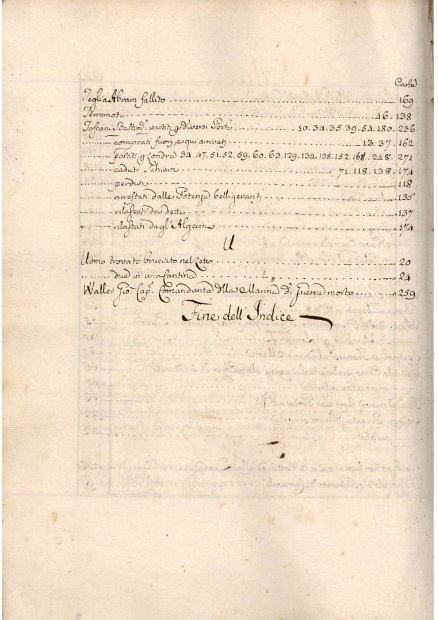 Carte
Teglia Abram fallito 169
Terremoti 46. 138
Toscani Bastim.ti partiti p diversi Porti 10. 34. 35. 39. 54. 180. 236
comprati fuori, e qui arrivati 13. 37. 162
partiti p Londra 34. 47. 51. 52. 59. 60. 63. 129. 134. 138. 152. 168. 248. 271
caduti Schiavi 71. 118. 138. 174
perduti 118
arrestati dalle Potenze belligeranti 135
rilassati da dette 137
rilassati dagl'Algerini 174
U
Uomo trovato bruciato nel Letto 20
due in una Cantina 24
Walles Gio: Cap.o Comandante della Marina di Guerra morto 259
Fine dell'Indice